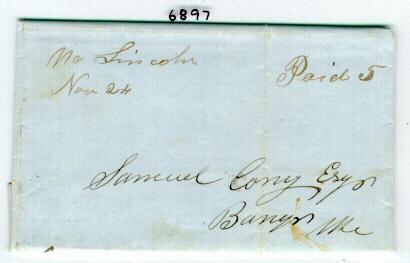 6897
No Lincoln
Nov 24
Paid 5
Samuel Cony Esqr
Bangor Me